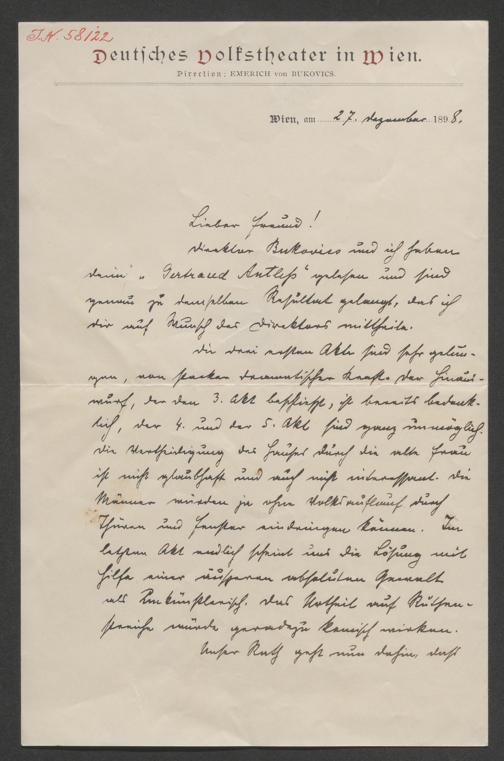 I.N. 58122
Deutsches Volkstheater in Wien.
Direction: EMERICH von BUKOVICS.
Wien, am 27. Dezember 1898.
Lieber Freund!
Direktor Bukovics und ich haben
dein „Gertraud Antleß" gelesen und sind
genau zu demselben Resultat gelangt, das ich
dir auf Wunsch des Direktors mittheile.
Die drei ersten Akte sind sehr gelun-
gen, von starker dramatischer Kraft. Der Hinaus-
wurf, der den 3. Akt beschließt, ist bereits bedenk-
lich, der 4. und der 5. Akt sind ganz unmöglich.
Die Vertheidigung des Hauses durch die alte Frau
ist nicht glaubhaft und auch nicht interessant. Die
Männer würden ja ohne Volksauflauf durch
Thüren und Fenster eindringen können. Im
letzten Akt endlich scheint uns die Lösung mit
Hilfe einer äußeren absoluten Gewalt
als unkünstlerisch. Das Urtheil auf Ruthen-
streiche würde geradezu komisch wirken.
Unser Rath geht nun dahin, daß